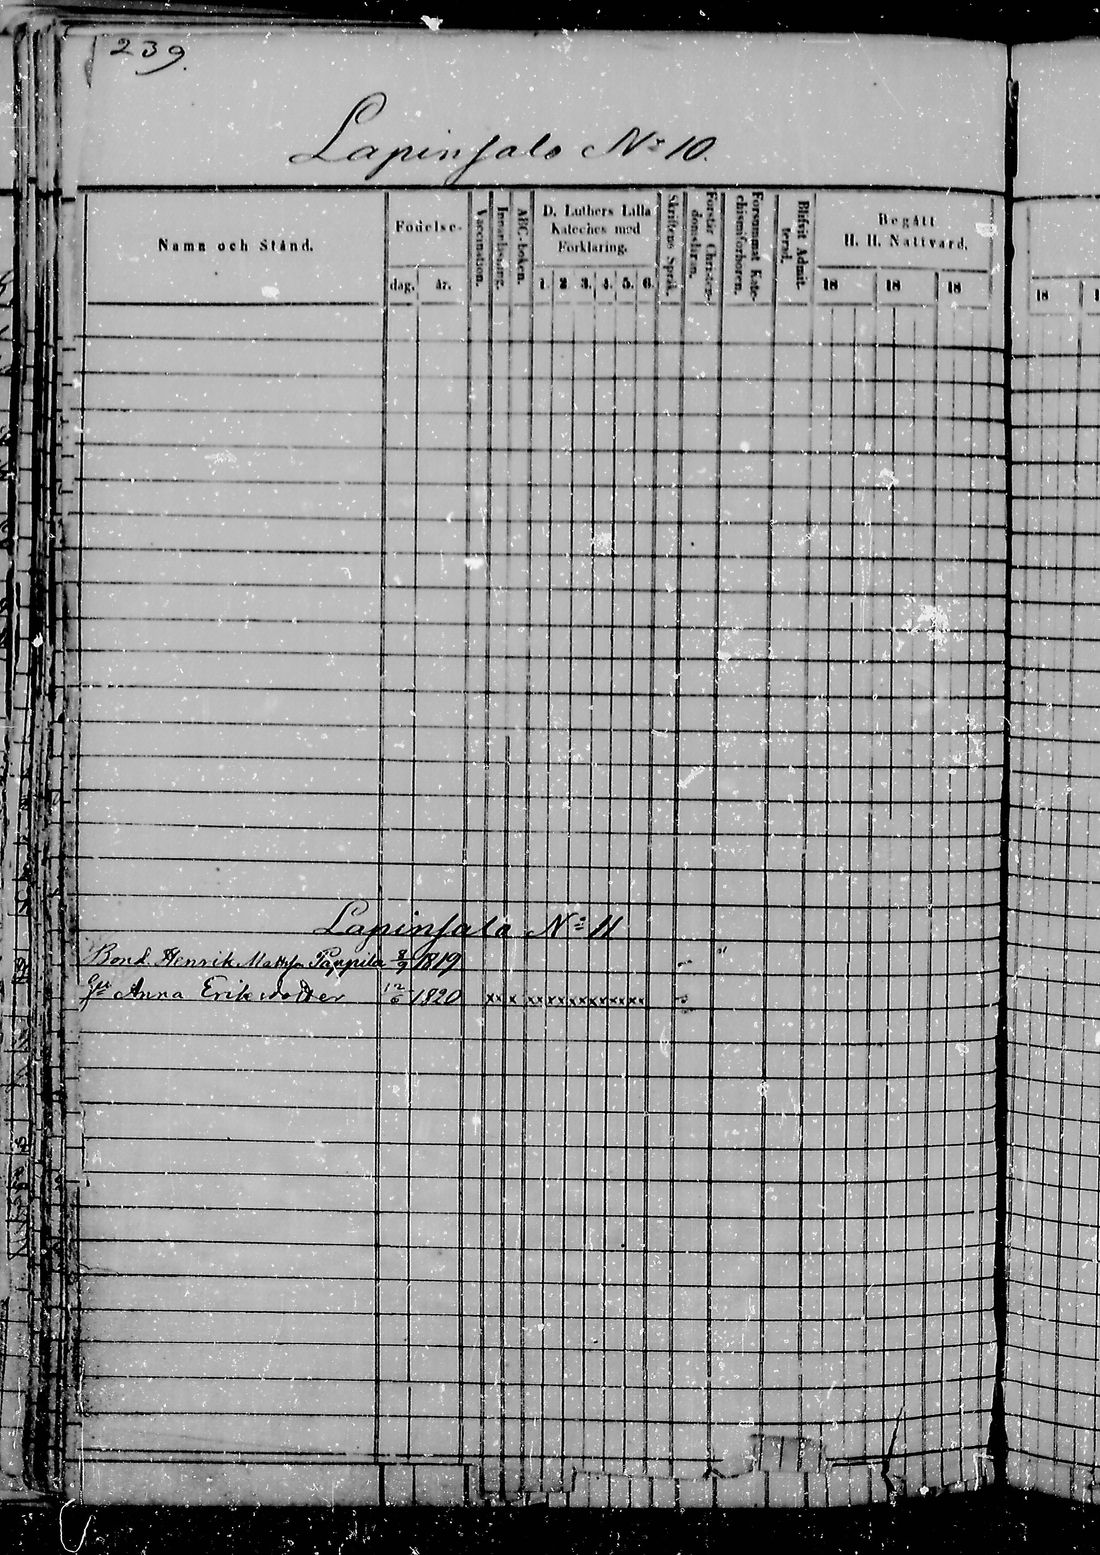 239.
Lapinsalo No 10.
Namn och Stånd.
Födelse-
dag.
år.
Vaccination.
Innanläsning.
ABC-boken.
D. Luthers Lilla
Kateches med
Förklaring.
1. 2 3. 4. 5. 6.
Skriftens Språk.
Förstår Christen-
domsläran.
Försummat Kate-
chismiförhören.
Blifvit Admit-
terad.
Begått
H. H. Nattvard.
18 18 18
18
Lapinsalo No 11
Bond. Henrik Mattss. Pappila 8/9 1819 "
Hu Anna Eriksdotter 12/6 1820 xxx xxxxxxxxxxxx